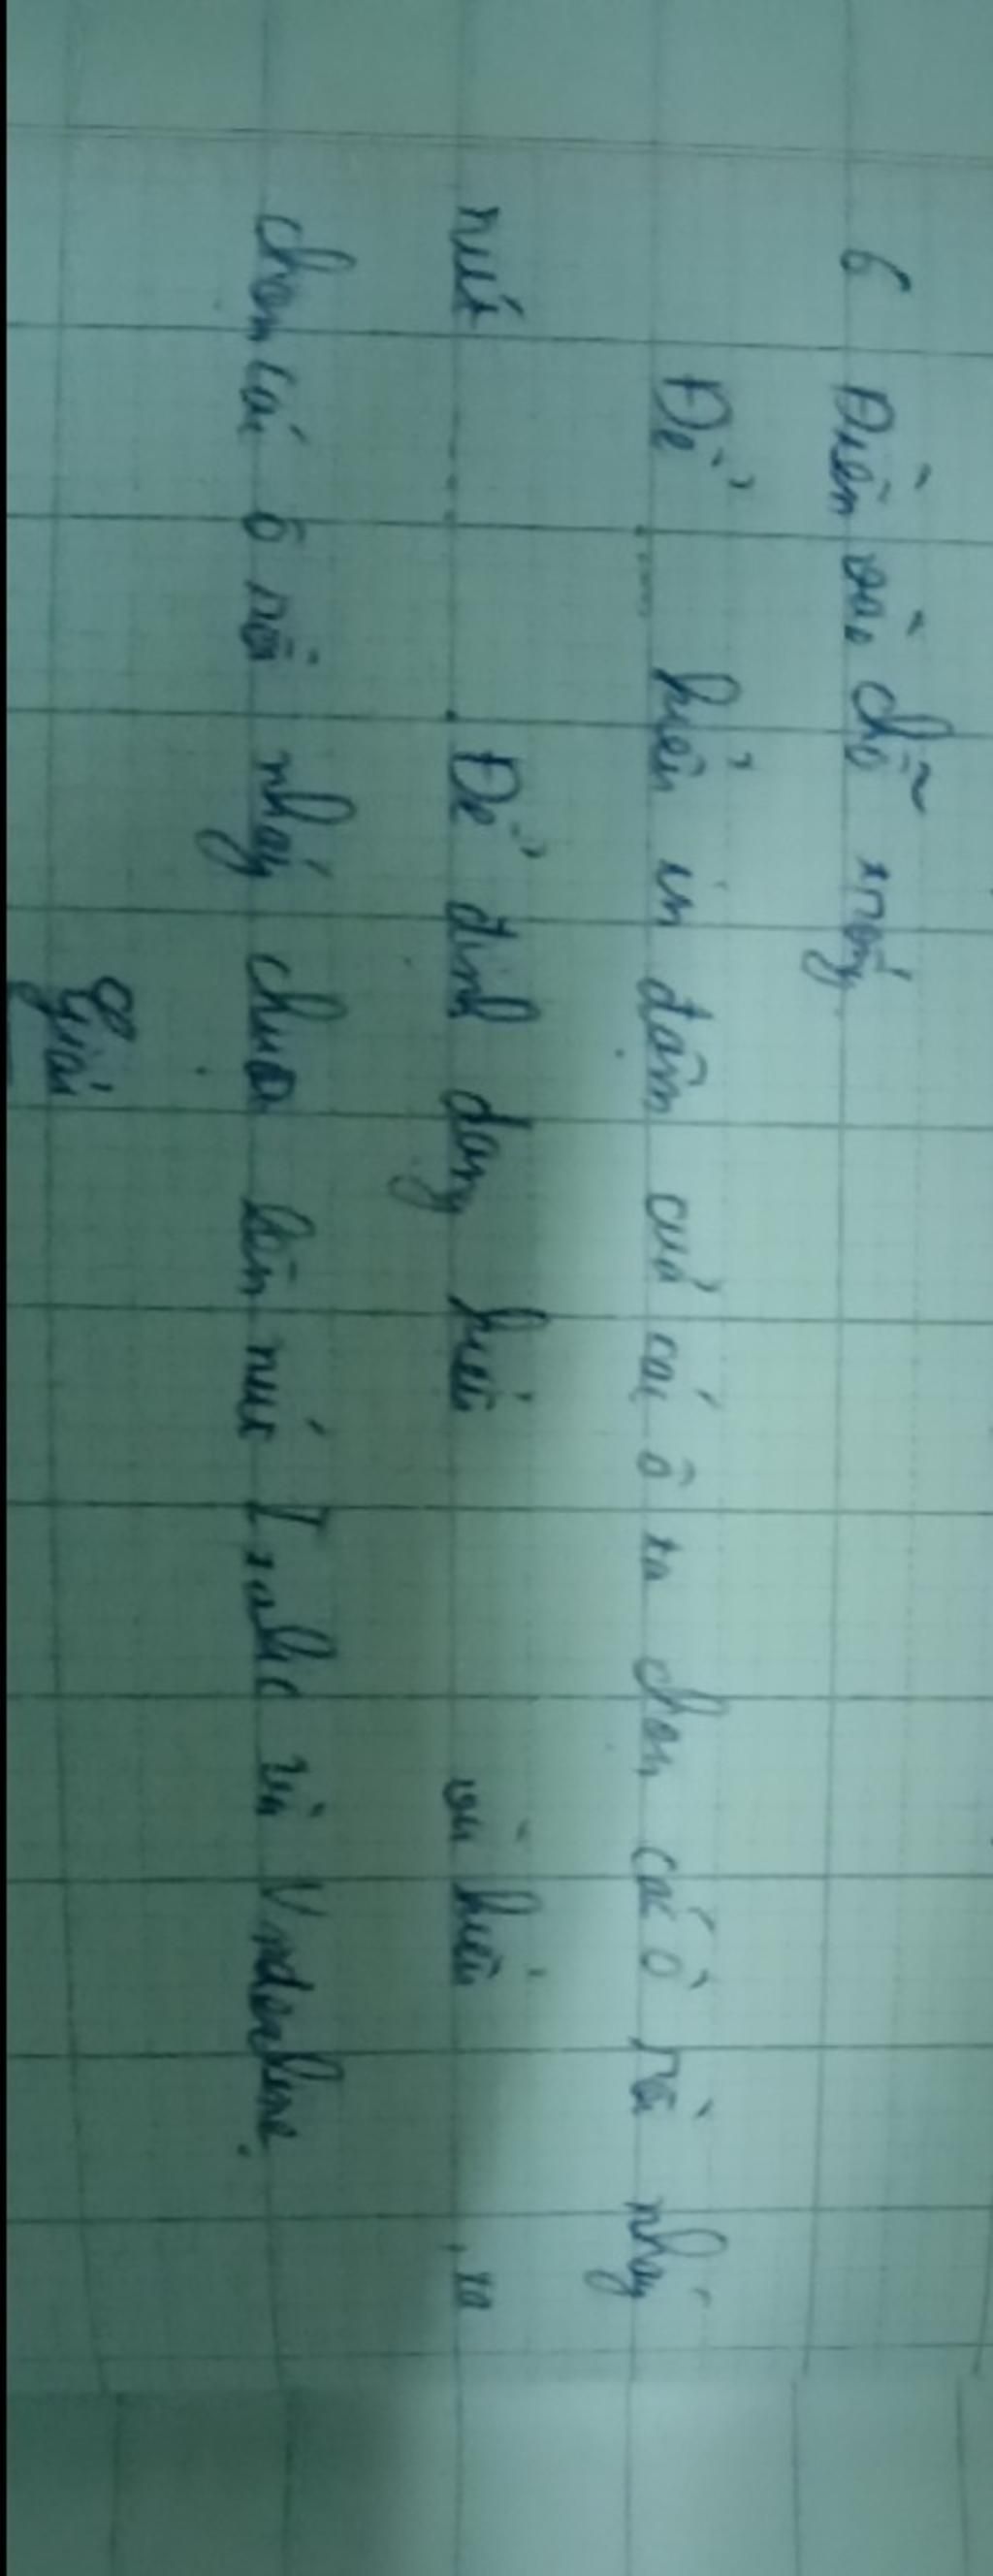 6 Điền vào chỗ trống
Để ..... kiểu in đậm của các ô ta chọn các ô rồi nháy
nút ........ Để định dạng kiểu và kiểu , ta
chọn các ô rồi nháy chuột lên nút Italic và Underline.
Giải